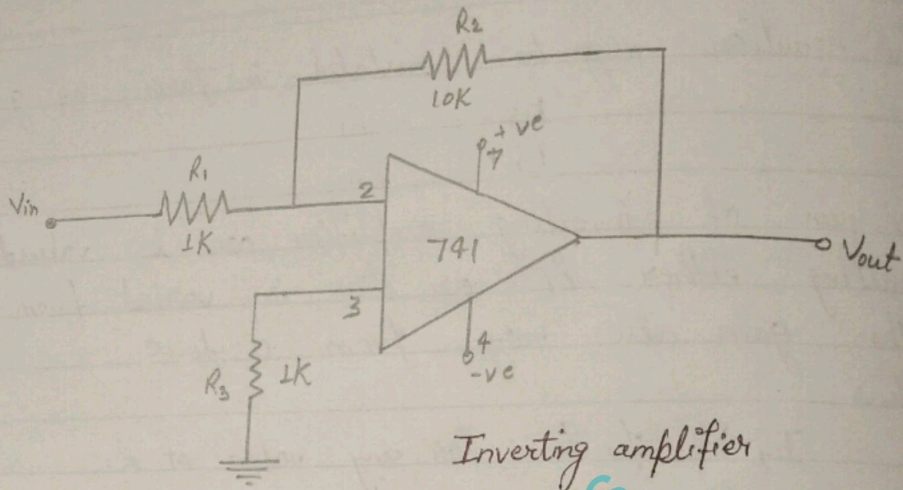 R2
10K
+ve
7
R1
Vin
1K
2
741
Vout
3
R3
1K
4
-ve
Inverting amplifier